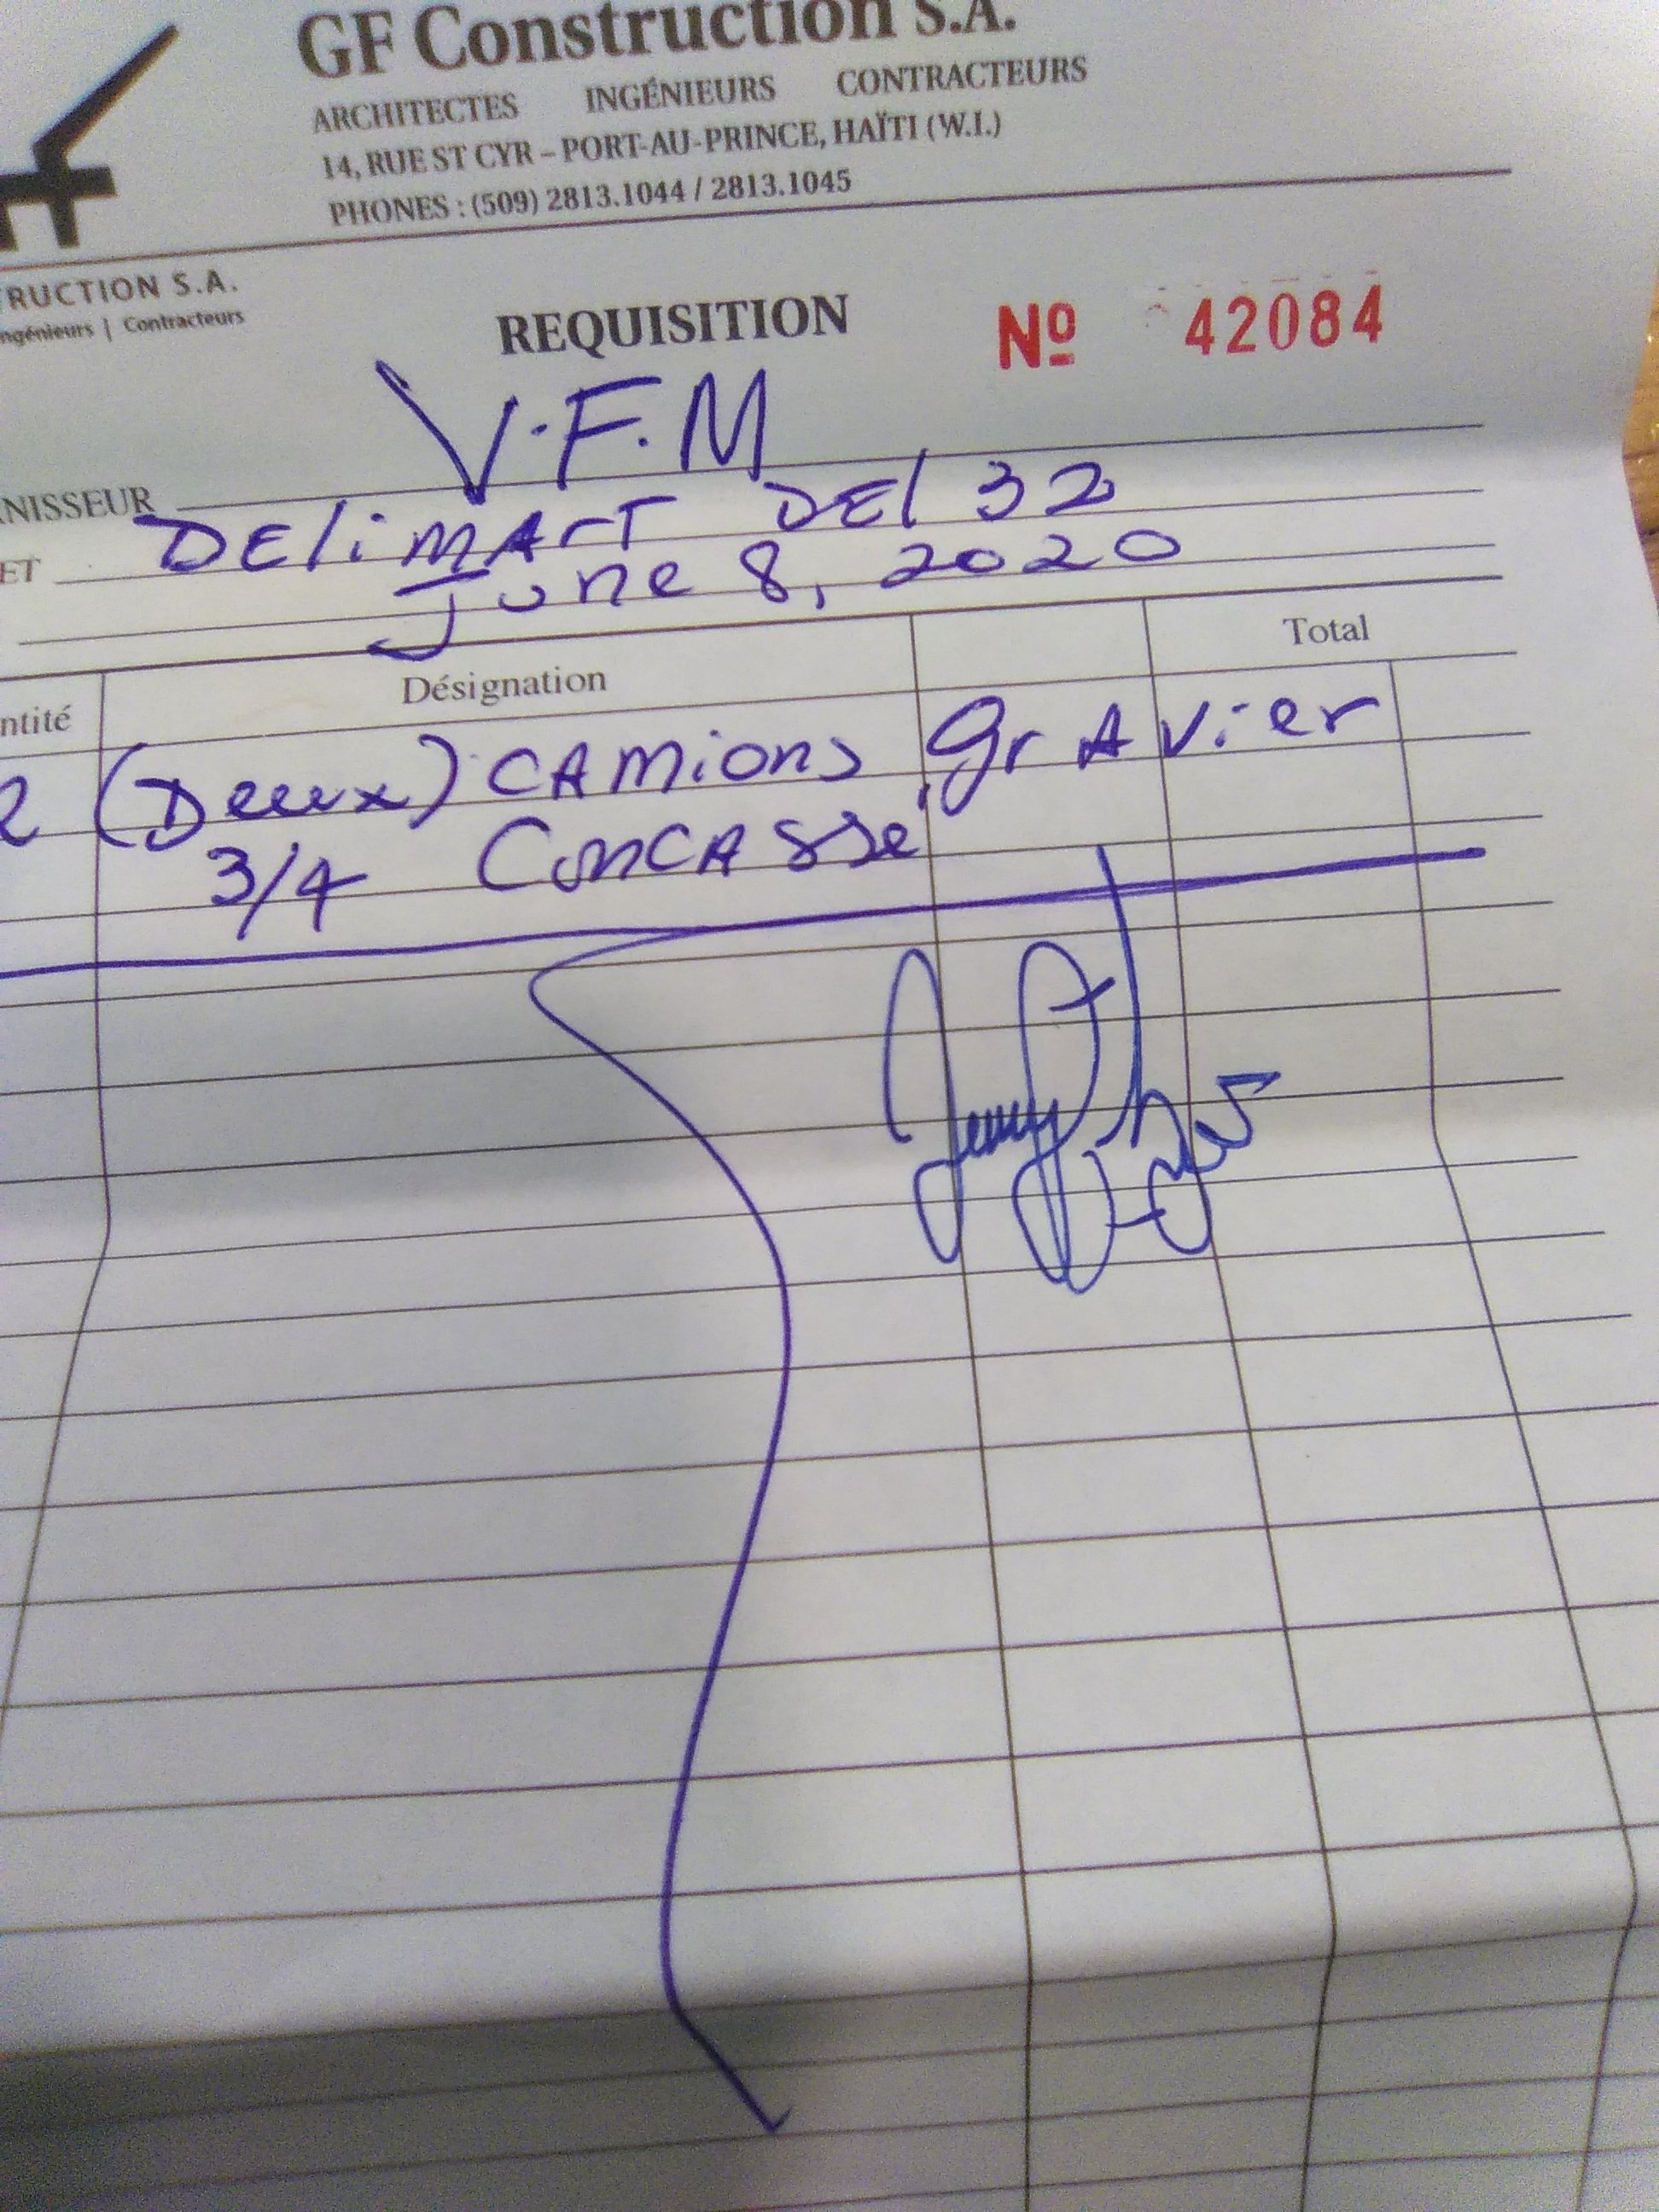 GF Construction S.A.
ARCHITECTES INGÉNIEURS CONTRACTEURS
14, RUE ST CYR – PORT-AU-PRINCE, HAÏTI (W.I.)
PHONES : (509) 2813.1044 / 2813.1045
RUCTION S.A.
ngénieurs | Contracteurs
REQUISITION Nº 42084
NISSEUR V.F.M
ET DEliMArT DEl 32
June 8, 2020
ntité Désignation Total
2 (Deux) CAMions grAvier
3/4 ConCASSe